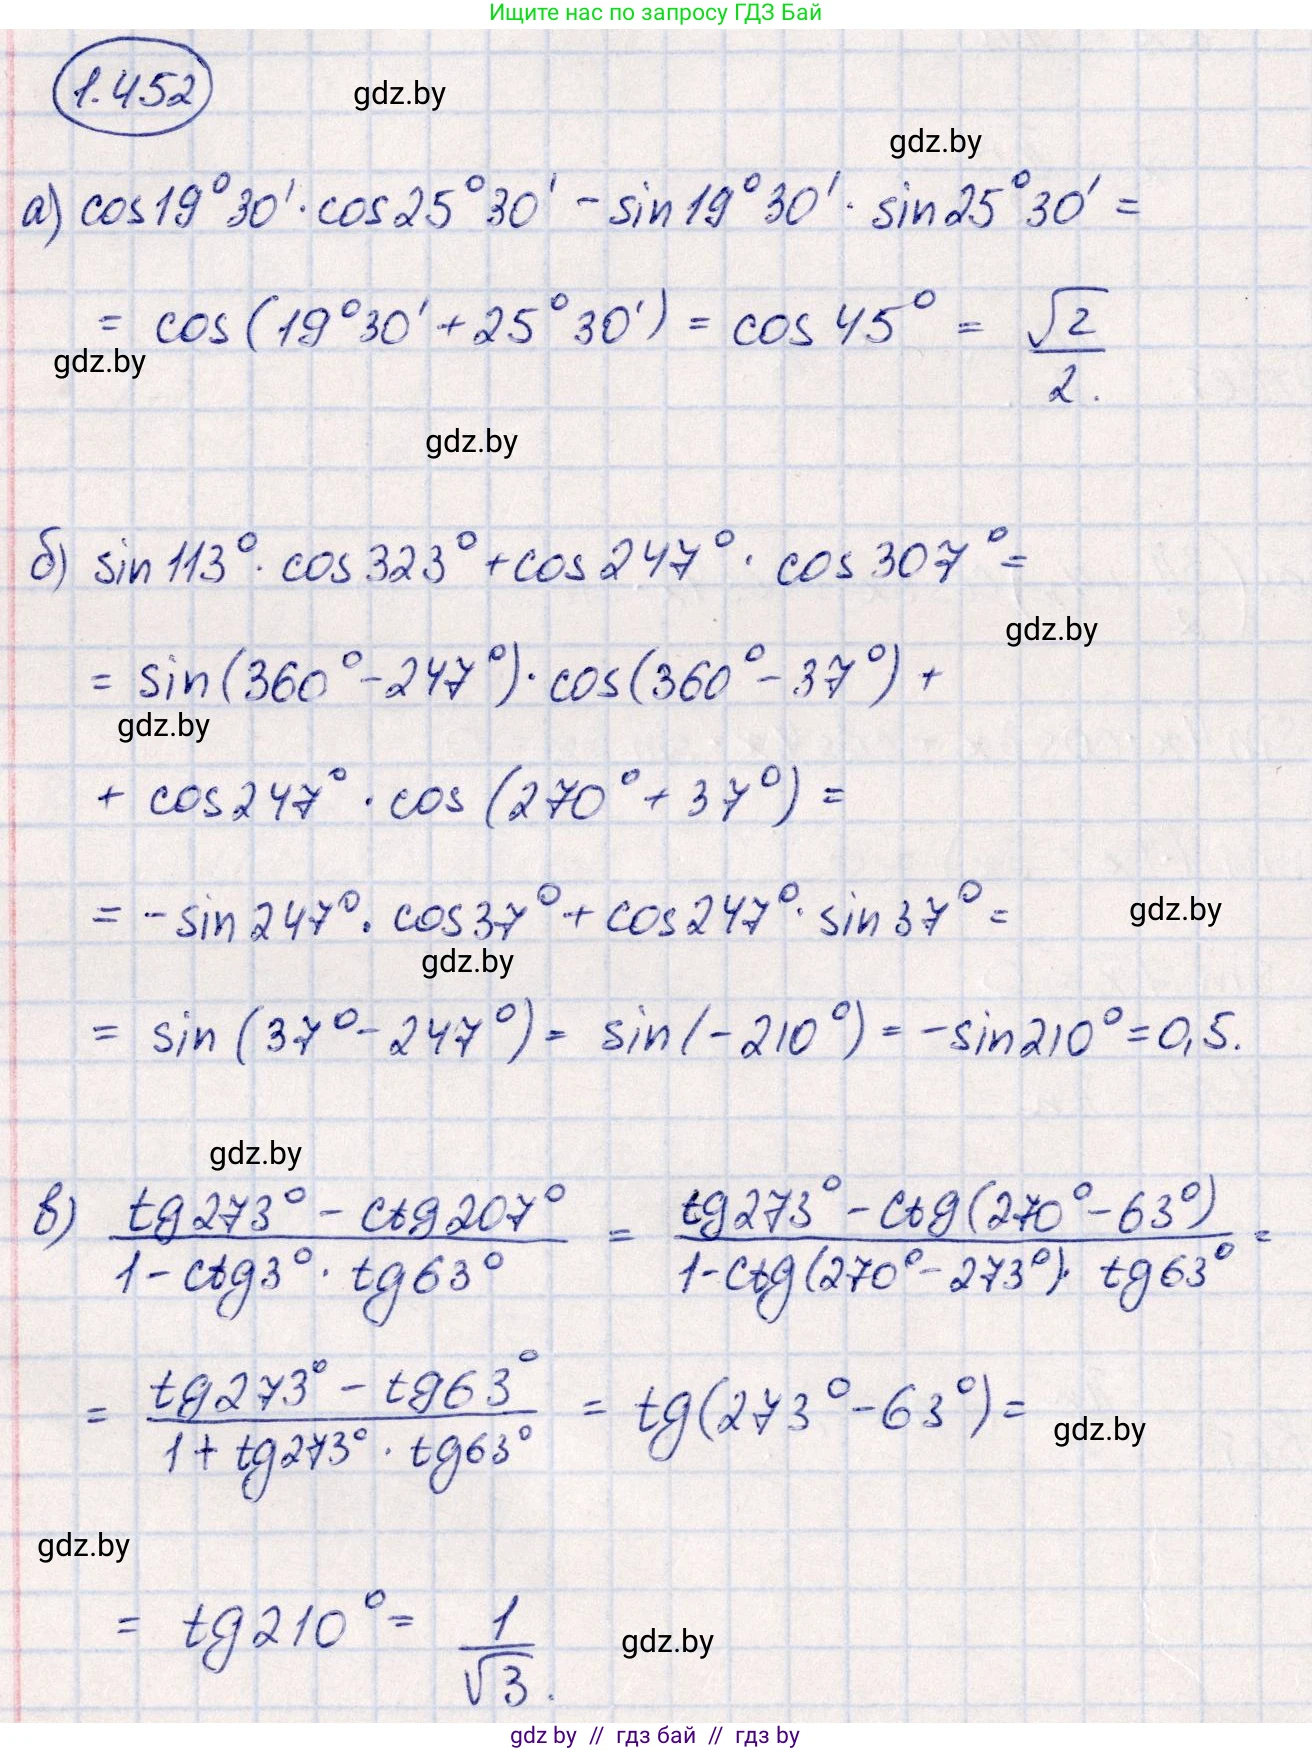 Ищите нас по запросу ГДЗ Бай
1.452
gdz.by
gdz.by
а) cos19°30'·cos25°30' - sin19°30'· sin25°30' =
= cos(19°30'+25°30') = cos 45° = √2/2.
gdz.by
gdz.by
б) sin113°· cos323°+cos247°· cos307°=
gdz.by
= sin(360°-247°)·cos(360°-37°)+
gdz.by
+ cos247°·cos(270°+37°)=
= -sin247°· cos37°+cos247°·sin37°=
gdz.by
gdz.by
= sin(37°-247°)= sin(-210°)=-sin210°=0,5.
gdz.by
в) (tg273°-ctg207°)/(1-ctg3°·tg63°) = (tg273°-ctg(270°-63°))/(1-ctg(270°-273°)·tg63°) =
= (tg273°-tg63°)/(1+tg273°·tg63°) = tg(273°-63°)=
gdz.by
gdz.by
= tg210°= 1/√3.
gdz.by
gdz.by // гдз бай // гдз by